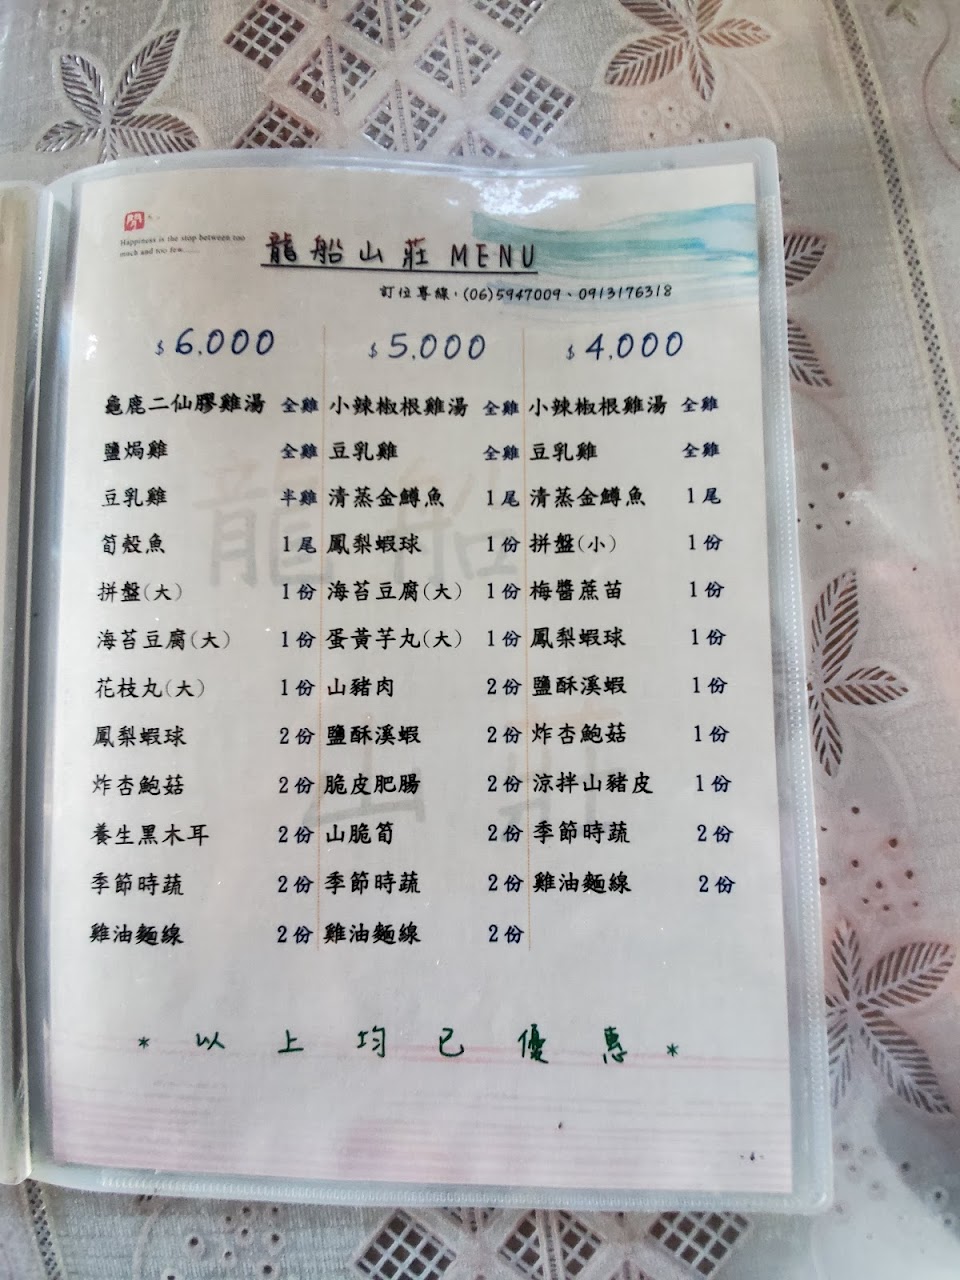 閒
Happiness is the stop between too
much and too few......
龍船山莊 MENU
訂位專線:(06)5947009、0913176318
$ 6.000
龜鹿二仙膠雞湯 全雞
鹽焗雞 全雞
豆乳雞 半雞
筍殼魚 1尾
拼盤(大) 1份
海苔豆腐(大) 1份
花枝丸(大) 1份
鳳梨蝦球 2份
炸杏鮑菇 2份
養生黑木耳 2份
季節時蔬 2份
雞油麵線 2份
$ 5.000
小辣椒根雞湯 全雞
豆乳雞 全雞
清蒸金鱒魚 1尾
鳳梨蝦球 1份
海苔豆腐(大) 1份
蛋黃芋丸(大) 1份
山豬肉 2份
鹽酥溪蝦 2份
脆皮肥腸 2份
山脆筍 2份
季節時蔬 2份
雞油麵線 2份
$ 4.000
小辣椒根雞湯 全雞
豆乳雞 全雞
清蒸金鱒魚 1尾
拼盤(小) 1份
梅醬蔗苗 1份
鳳梨蝦球 1份
鹽酥溪蝦 1份
炸杏鮑菇 1份
涼拌山豬皮 1份
季節時蔬 2份
雞油麵線 2份
龍船
山莊
* 以上均已優惠 *